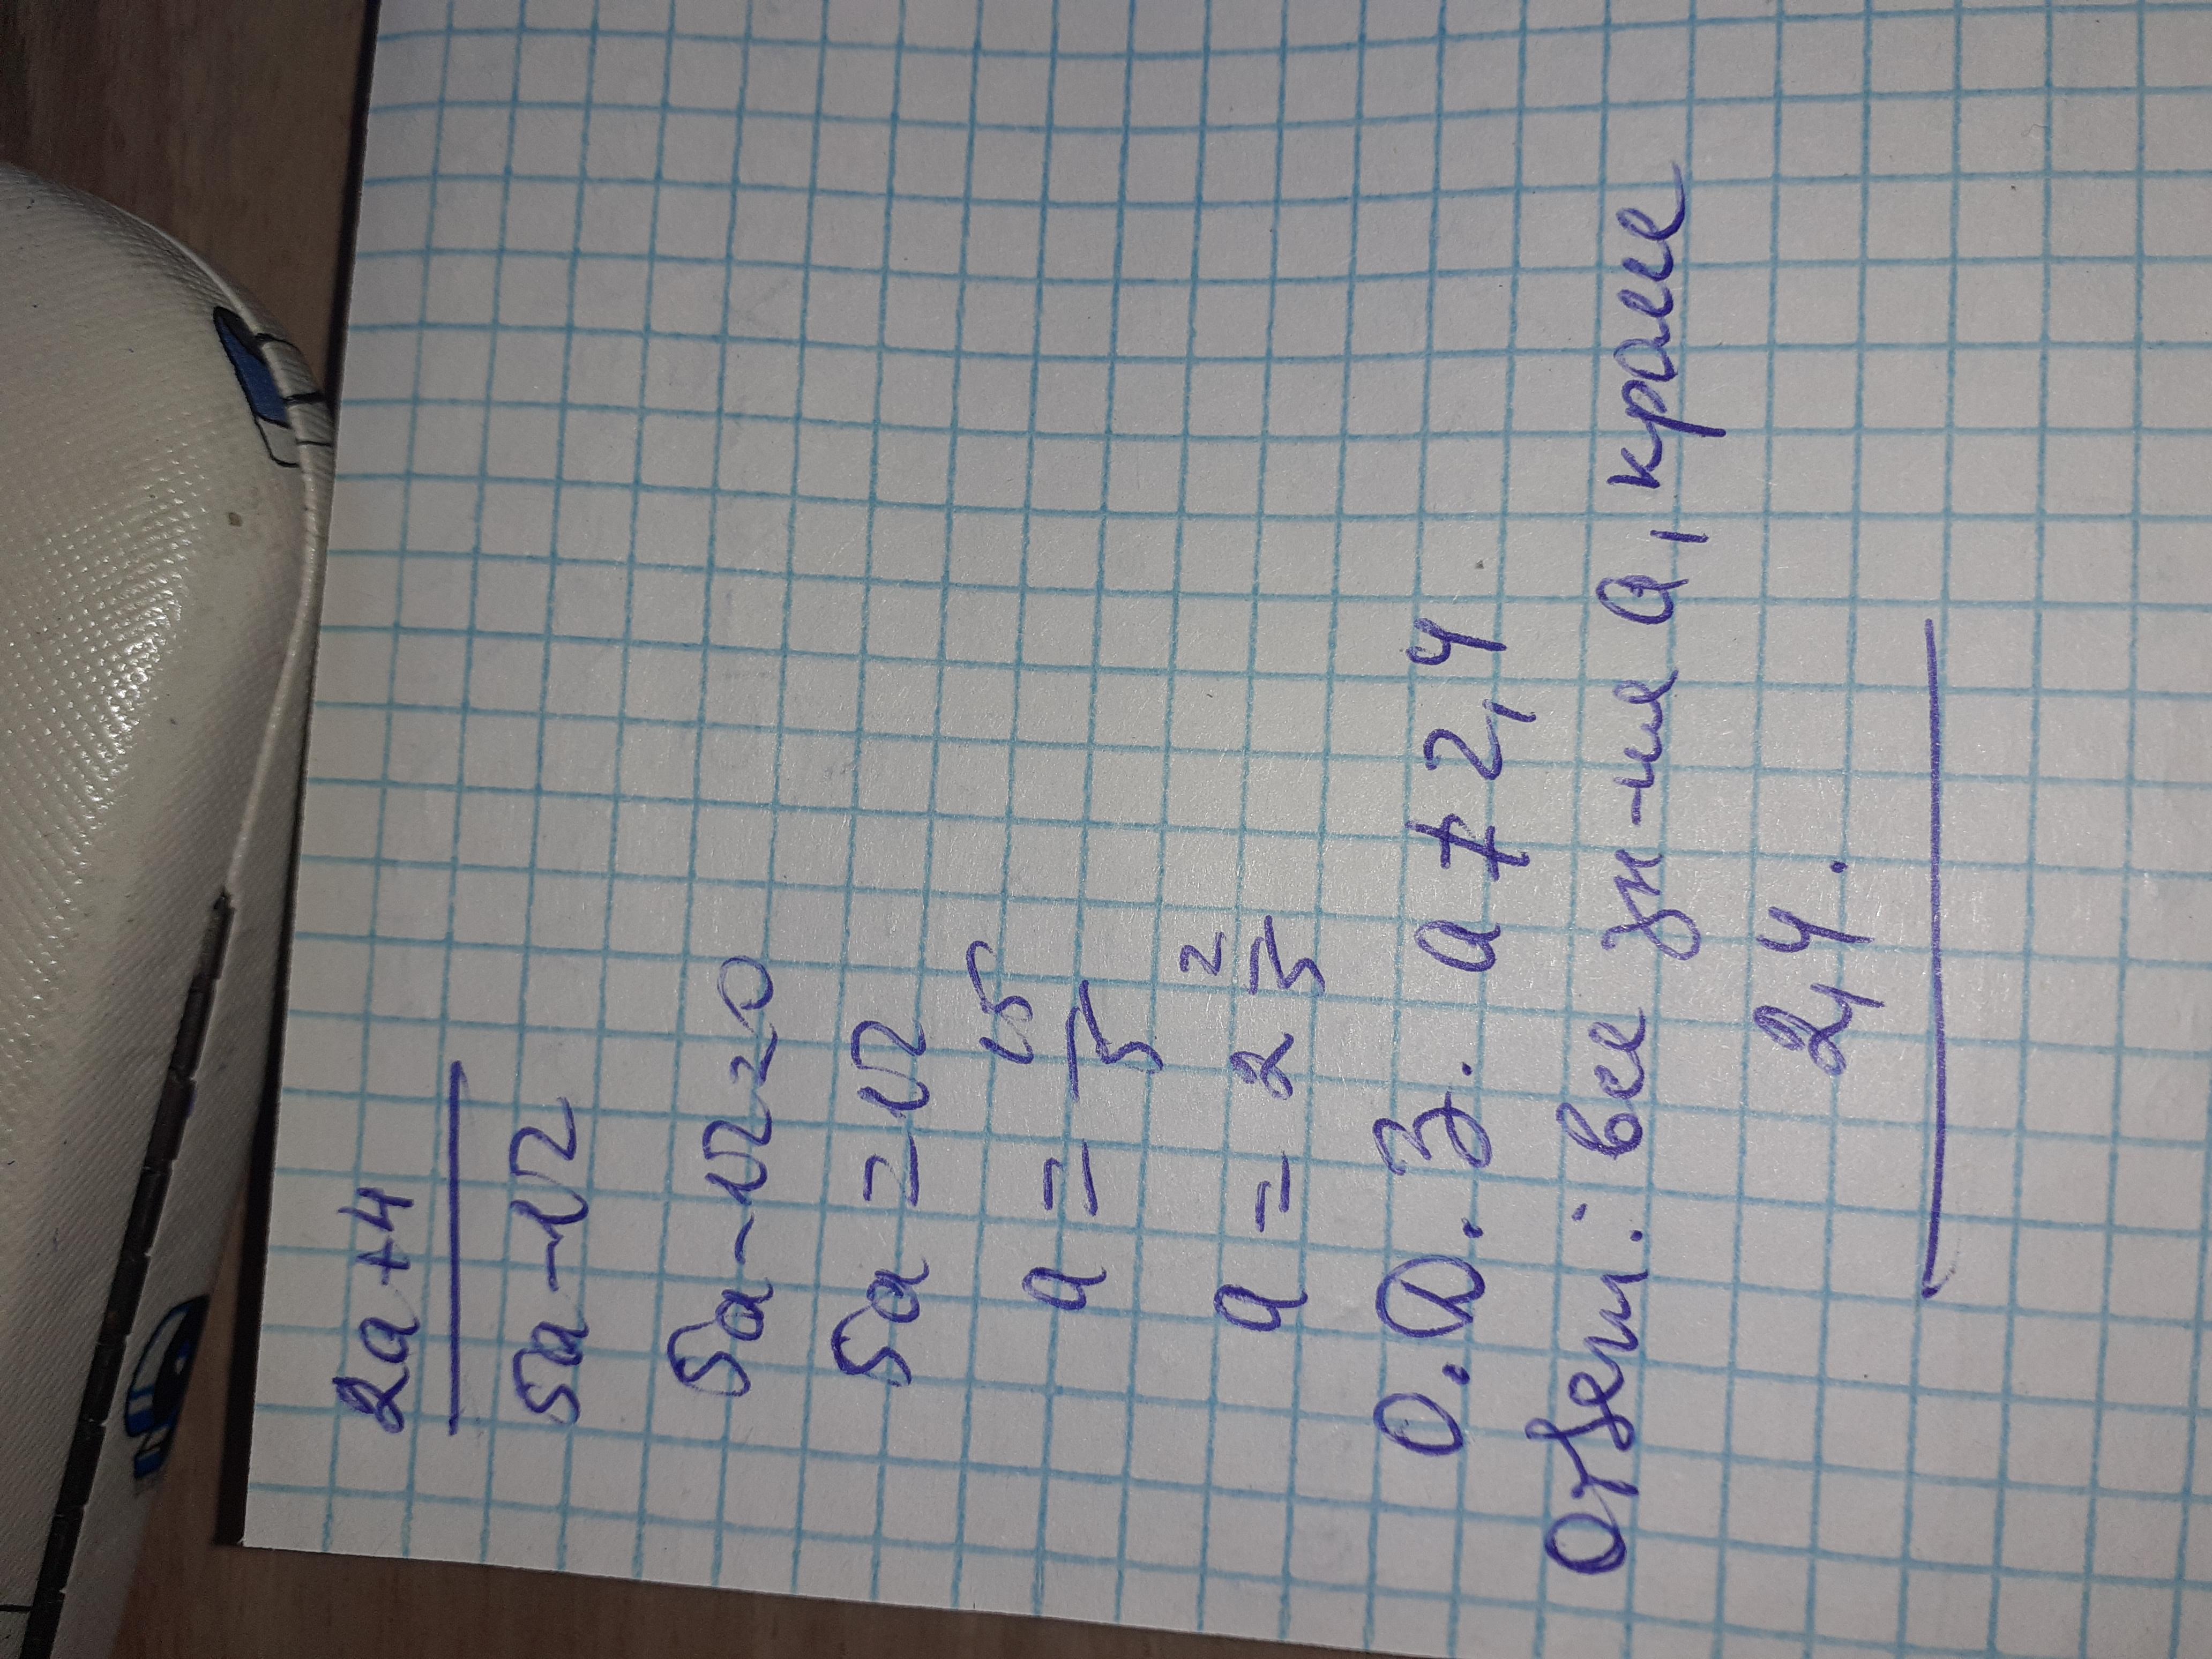 2a+4
5a-12
5a-12=0
5a=12
a=12/5
a=2 2/5
О.Д.З. a≠2,4
Ответ: все зн-ия a, кроме
2,4.